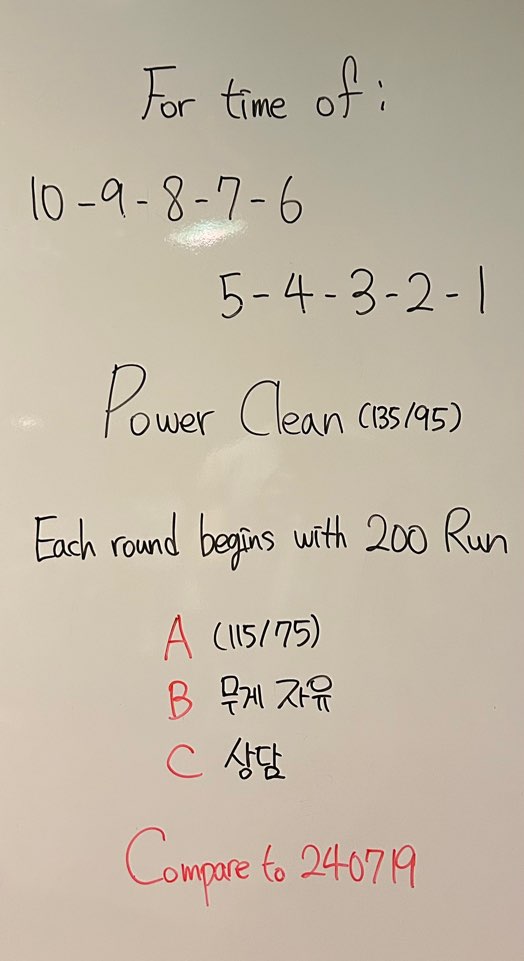 For time of :
10-9-8-7-6
5-4-3-2-1
Power Clean (135/95)
Each round begins with 200 Run
A (115/75)
B 무게 자유
C 상담
Compare to 240719